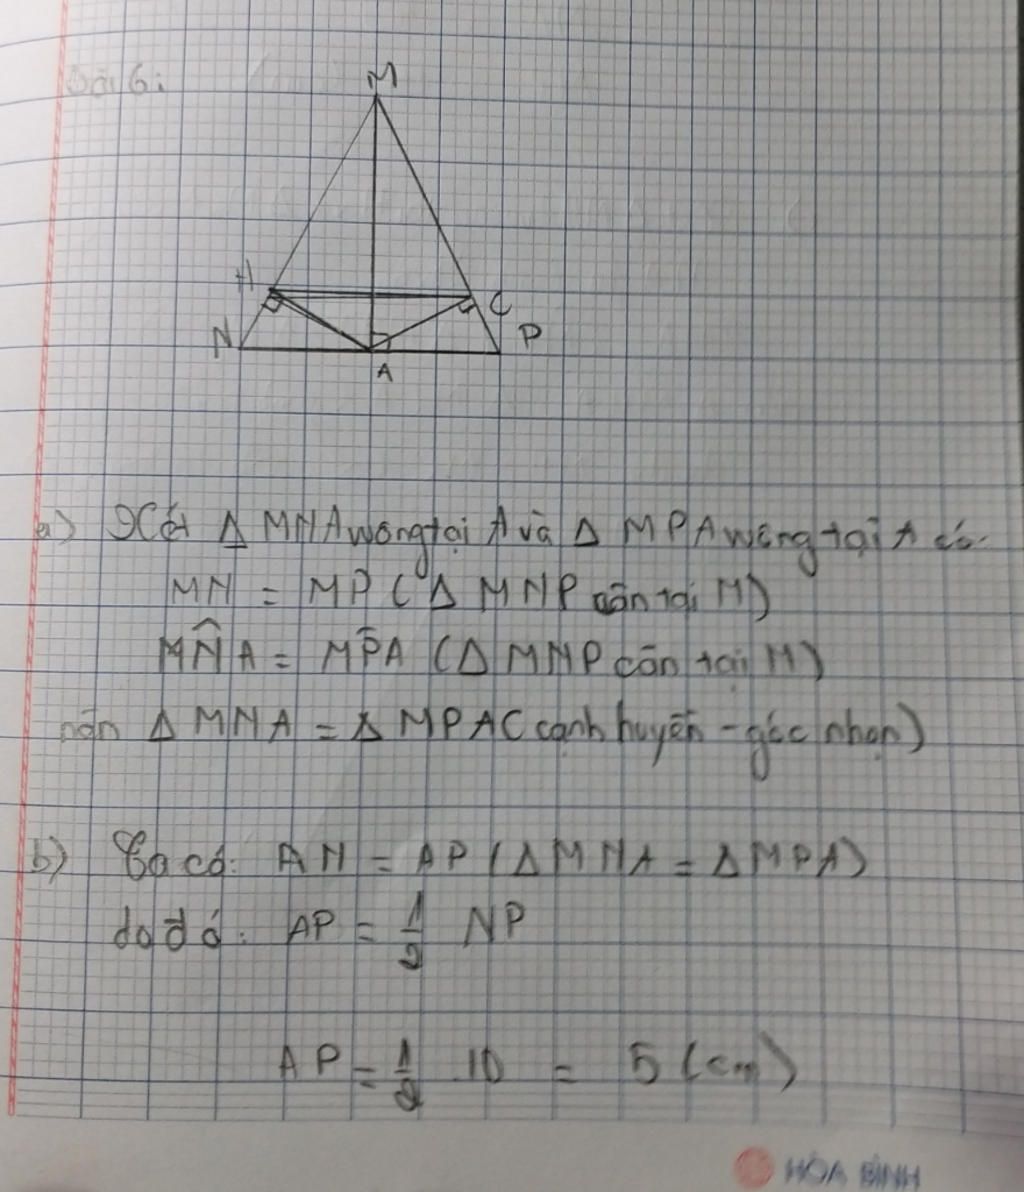 Bài 6:
M
H
C
N
P
A
a) Xét Δ MNA vuông tại A và Δ MPA vuông tại A có:
MN = MP (Δ MNP cân tại M)
MN̂A = MP̂A (Δ MNP cân tại M)
nên Δ MNA = Δ MPA (cạnh huyền - góc nhọn)
b) Ta có: AN = AP (Δ MNA = Δ MPA)
do đó: AP = 1/2 NP
AP = 1/2 .10 = 5 (cm)
HÒA BÌNH